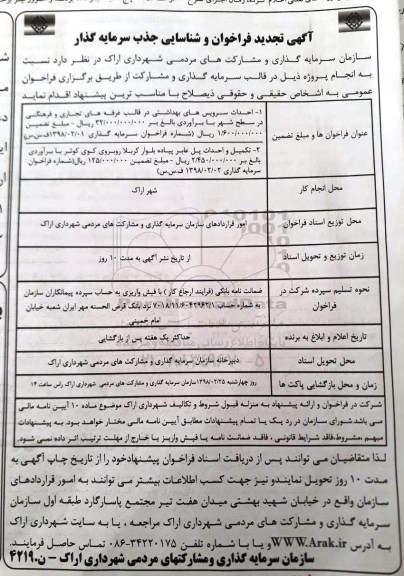 آگهی تجدید فراخوان و شناسایی جذب سرمایه گذار
سازمان سرمایه گذاری و مشارکت های مردمی شهرداری اراک در نظر دارد نسبت
به انجام پروژه ذیل در قالب سرمایه گذاری و مشارکت از طریق برگزاری فراخوان
عمومی به اشخاص حقیقی و حقوقی ذیصلاح با مناسب ترین پیشنهاد اقدام نماید
عنوان فراخوان ها و مبلغ تضمین
۱- احداث سرویس های بهداشتی در قالب غرفه های تجاری و فرهنگی
در سطح شهر با برآوردی بالغ بر ۳۲/۰۰۰/۰۰۰/۰۰۰ ریال - مبلغ تضمین
۱/۶۰۰/۰۰۰/۰۰۰ ریال (شماره فراخوان سرمایه گذاری ۱۳۹۸/۰۲/۰۱ ف.س.س)
۲- تکمیل و احداث پل عابر پیاده بلوار کربلا روبروی کوی کوثر با برآوردی
بالغ بر ۲/۴۵۰/۰۰۰/۰۰۰ ریال - مبلغ تضمین ۱۲۵/۰۰۰/۰۰۰ ریال(شماره فراخوان
سرمایه گذاری ۱۳۹۸/۰۲/۰۲ ف.س.س)
محل انجام کار
شهر اراک
محل توزیع اسناد فراخوان
امور قراردادهای سازمان سرمایه گذاری و مشارکت های مردمی شهرداری اراک
زمان توزیع و تحویل اسناد
از تاریخ نشر آگهی به مدت ۱۰ روز
نحوه تسلیم سپرده شرکت در
فراخوان
ضمانت نامه بانکی (فرایند ارجاع کار) یا فیش واریزی به حساب سپرده پیمانکاران سازمان
به شماره حساب نزد بانک قرض الحسنه مهر ایران شعبه خیابان
امام خمینی
تاریخ اعلام و ابلاغ به برنده
حداکثر یک هفته پس از بازگشایی
محل تحویل اسناد
دبیرخانه سازمان سرمایه گذاری و مشارکت های مردمی شهرداری اراک
زمان و محل بازگشایی پاکت ها
روز چهارشنبه ۱۳۹۸/۰۲/۲۵ سازمان سرمایه گذاری و مشارکت های مردمی شهرداری اراک راس ساعت ۱۴
شرکت در فراخوان و ارائه پیشنهاد به منزله قبول شروط و تکالیف شهرداری اراک موضوع ماده ۱۰ آیین نامه مالی
می باشد.شورای سازمان در رد یک یا تمام پیشنهادات مطابق آیین نامه مالی مختار خواهد بود. به پیشنهادات
مبهم ،مشروط،فاقد شرایط قانونی ، فاقد ضمانت نامه یا فیش واریز یا خارج از مهلت ترتیب اثر داده نمی شود.
لذا متقاضیان می توانند پس از دریافت اسناد فراخوان پیشنهادخود را از تاریخ چاپ آگهی به
مدت ۱۰ روز تحویل نمایندو نیز جهت کسب اطلاعات بیشتر می توانند به امور قراردادهای
سازمان واقع در خیابان شهید بهشتی میدان هفت تیر مجتمع پاسارگارد طبقه اول سازمان
سرمایه گذاری و مشارکت های مردمی شهرداری اراک مراجعه ، یا به سایت شهرداری اراک
به آدرس WWW.Arak.ir و یا با شماره تلفن ۳۴۲۲۰۱۷۵-۰۸۶ تماس حاصل فرمایند.
سازمان سرمایه گذاری و مشارکتهای مردمی شهرداری اراک - ن.۴۲۱۹